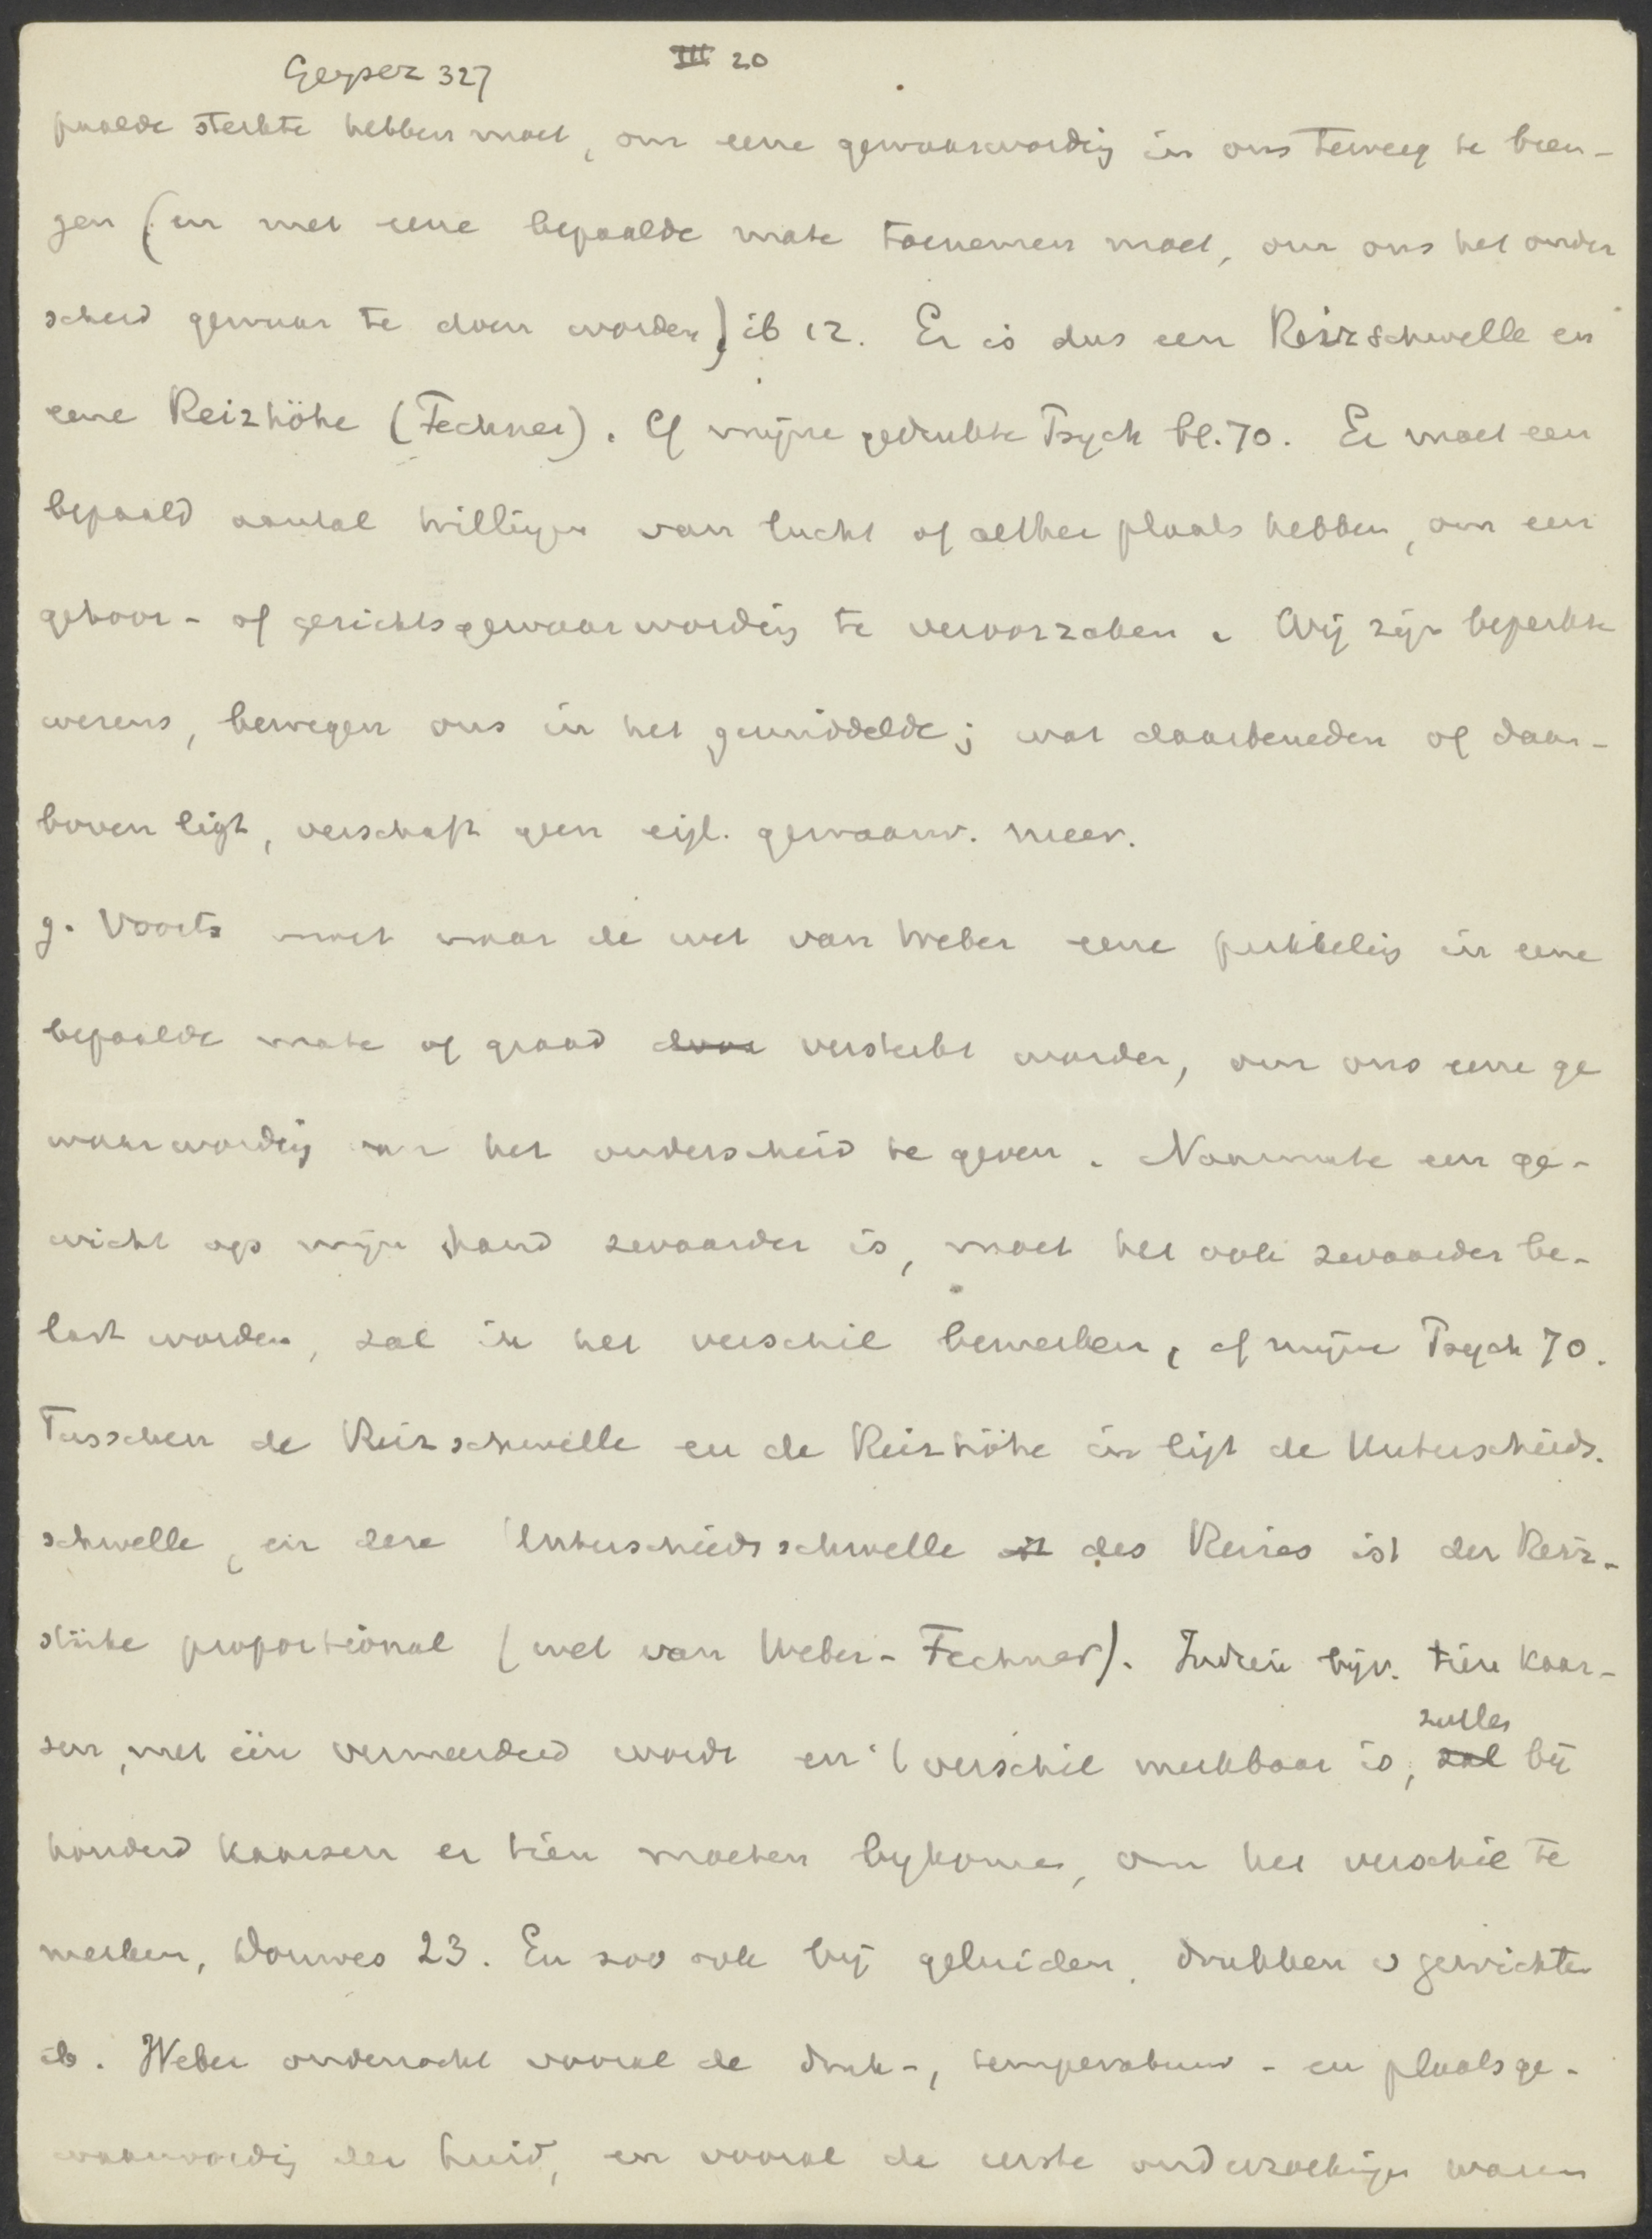 Geyser 327 III 20
paalde sterkte hebben moet, om eene gewaarwording in ons teweeg te bren-
gen (en met eene bepaalde mate toenemen moet, om ons het onder
scheid gewaar te doen worden) ib 12. Er is dus een Reizschwelle en
eene Reizhöhe (Fechner). Cf mijne gedrukte Psych bl. 70. Er moet een
bepaald aantal trillingen van lucht of aether plaats hebben, om een
gehoor- of gezichtsgewaarwording te veroorzaken. Wij zijn beperkte
wezens, bewegen ons in het gemiddelde; wat daarbeneden of daar-
boven ligt, verschaft geen eigl. gewaarw. meer.
g. Voorts moet naar de wet van Weber eene prikkeling in eene
bepaalde mate of graad door versterkt worden, om ons eene ge
waarwording van het onderscheid te geven. Naarmate een ge-
wicht op mijn hand zwaarder is, moet het ook zwaarder be-
last worden, zal ik het verschil bemerken, cf mijne Psych 70.
Tusschen de Reizschwelle en de Reizhöhe in ligt de Unterschieds.
schwelle, en deze Unterschiedsschwelle ist des Reizes ist der Reiz-
stärke proportional (wet van Weber-Fechner). Indien bijv. tien kaar-
sen, met één vermeerderd wordt en 't verschil merkbaar is, zal zullen bij
honderd kaarsen er tien moeten bykomen, om het verschil te
merken, Douwes 23. En zoo ook bij geluiden, drukken o gewichten
ib. Weber onderzocht vooral de druk-, temperatuur- en plaatsge-
waarwording der huid, en vooral de eerste onderzoekingen waren